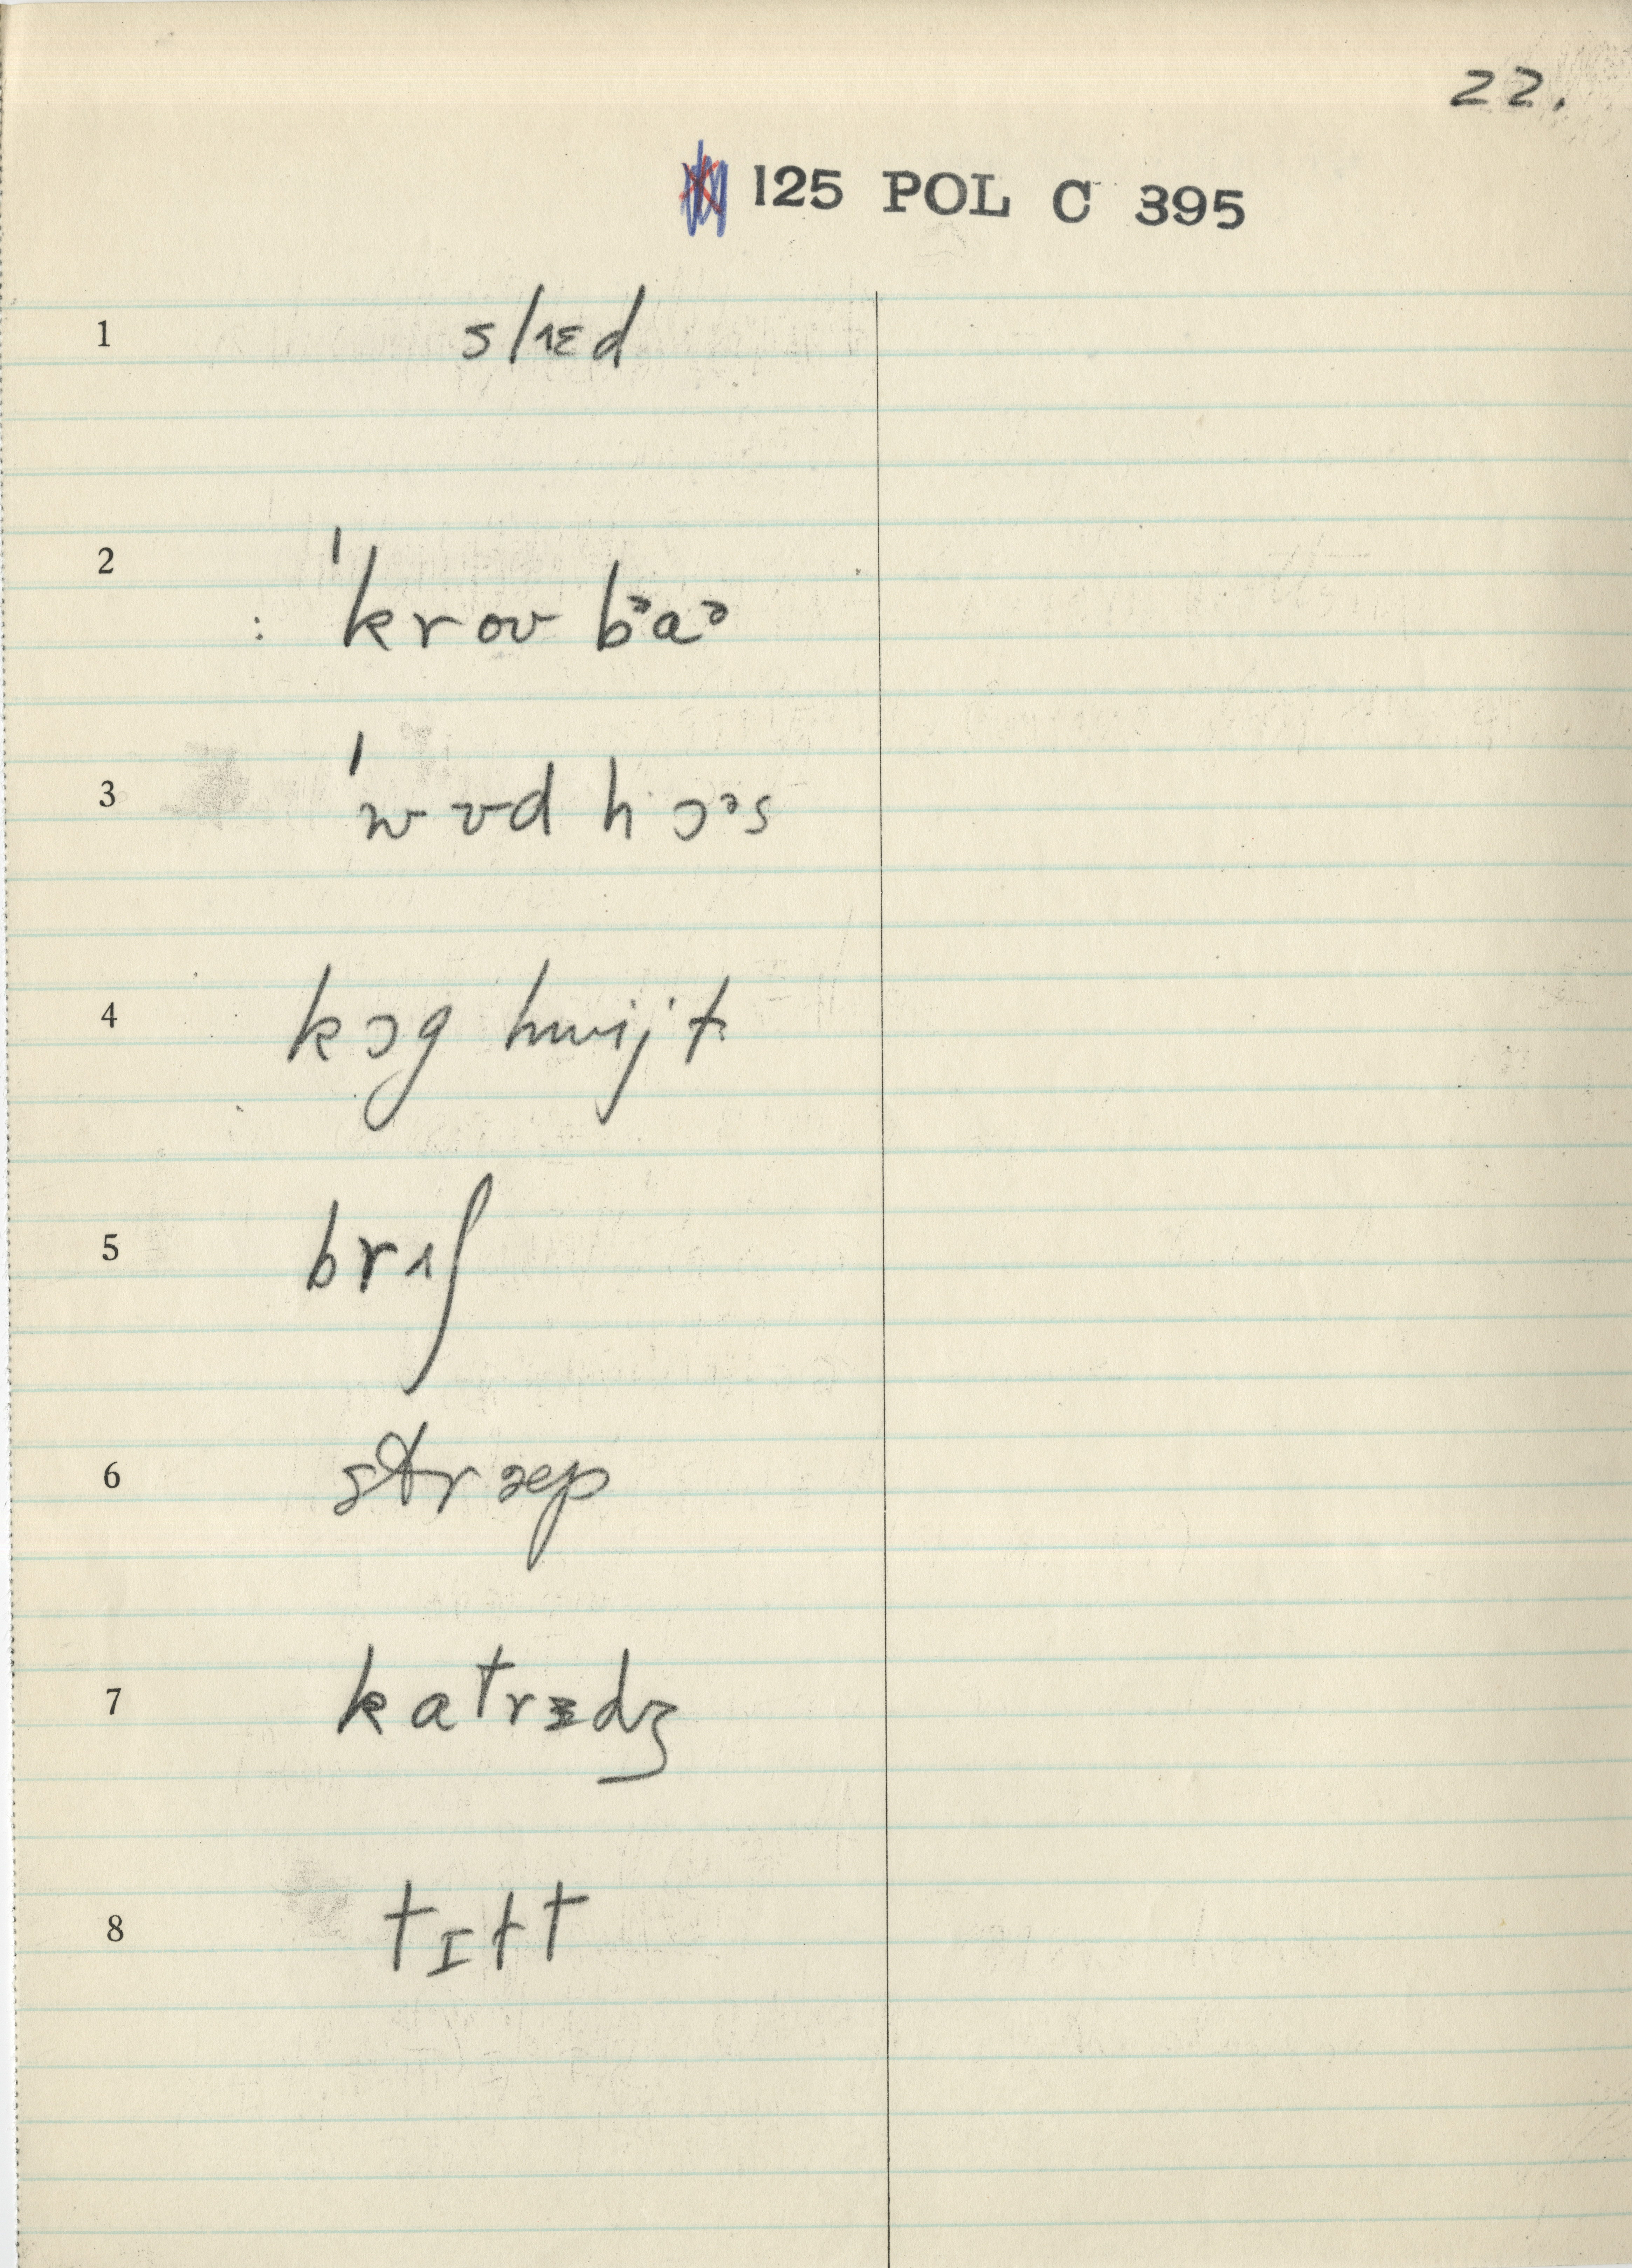 22.
125 POL C 395
1 slɪɛd
2 : ˈkroʊ bᵊaᵊ
3 ˈwʊd hɔᵊs
4 kɔg hwijt
5 brɪʃ
6 stræp
7 katrɪdʒ
8 tɪɫt